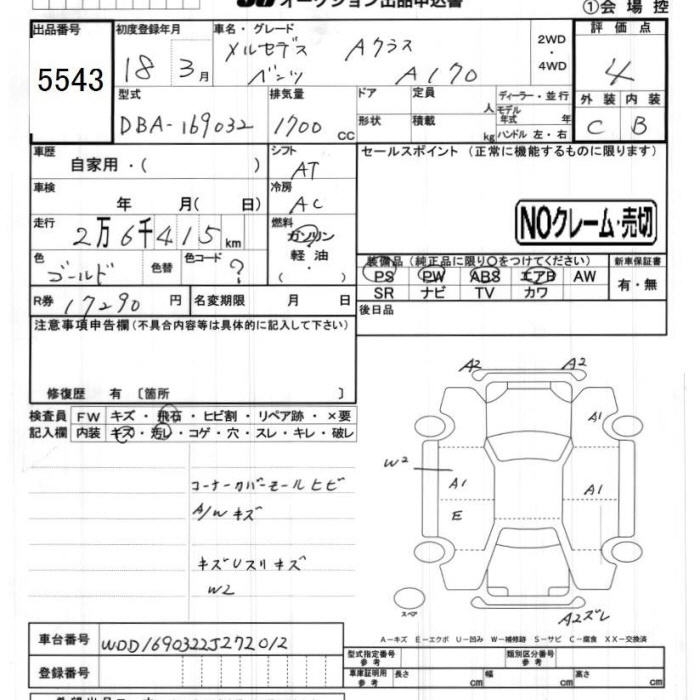 オークション出品申込書
①会場控
出品番号
5543
初度登録年月
18 3月
車名・グレード
メルセデス Aクラス
ベンツ A170
2WD
・
4WD
評価点
4
外装 内装
C B
型式
DBA-169032
排気量
1700 cc
ドア
形状
定員 人
積載 kg
ディーラー・並行
モデル年式 年
ハンドル 左・右
車歴
自家用・( )
シフト
AT
車検
年 月( 日)
冷房
AC
走行
2万6千415km
燃料
ガソリン
軽油
・( )
色
ゴールド
色替
色コード
?
R券 17290円
名変期限 月 日
セールスポイント (正常に機能するものに限ります)
NOクレーム・売切
装備品(純正品に限り○をつけてください)
PS PW ABS エアB AW
SR ナビ TV カワ
新車保証書
有・無
後日品
注意事項申告欄(不具合内容等は具体的に記入して下さい)
修復歴 有 〔箇所 〕
検査員記入欄
FW キズ・飛石・ヒビ割・リペア跡・×要
内装 キズ・汚レ・コゲ・穴・スレ・キレ・破レ
コーナーカバーモールヒビ
A/Wキズ
キズUスリキズ
W2
A2
A2
A1
W2
A1
A1
E
スペア
A2ズレ
A－キズ E－エクボ U－凹み W－補修跡 S－サビ C－腐食 XX－交換済
車台番号 WDD1690322J272012
登録番号
型式指定番号
参考
類別区分番号
参考
車庫証明用
参考
長さ cm
幅 cm
高さ cm